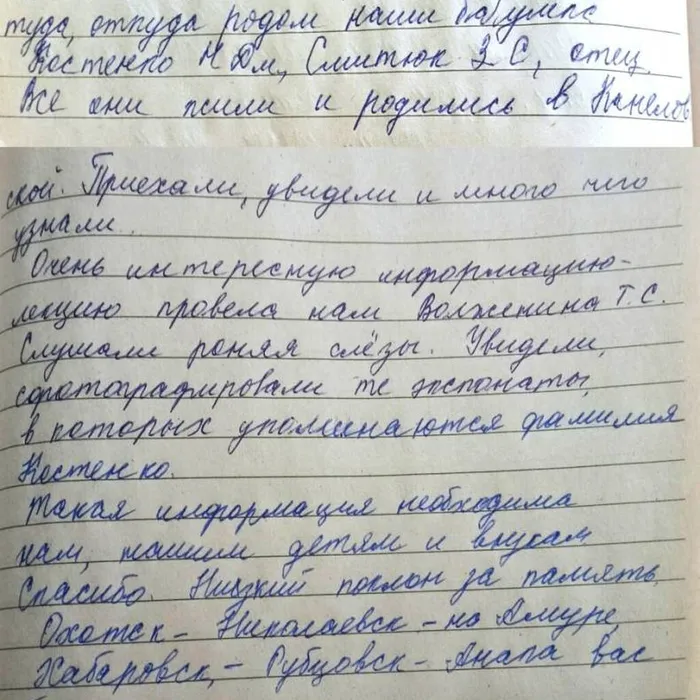 туда, откуда родом наши бабушка
Костенко Н Дм, Смитюк З С, отец.
Все они жили и родились в Канелов
ской. Приехали, увидели и много чего
узнали.
Очень интересную информацию-
лекцию провела нам Волженина Т. С.
Слушали роняя слёзы. Увидели,
сфотографировали те экспонаты,
в которых упоминаются фамилия
Костенко.
Такая информация необходима
нам, нашим детям и внукам
Спасибо. Низкий поклон за память.
Охотск - Николаевск - на Амуре,
Хабаровск, - Рубцовск - Анапа вас